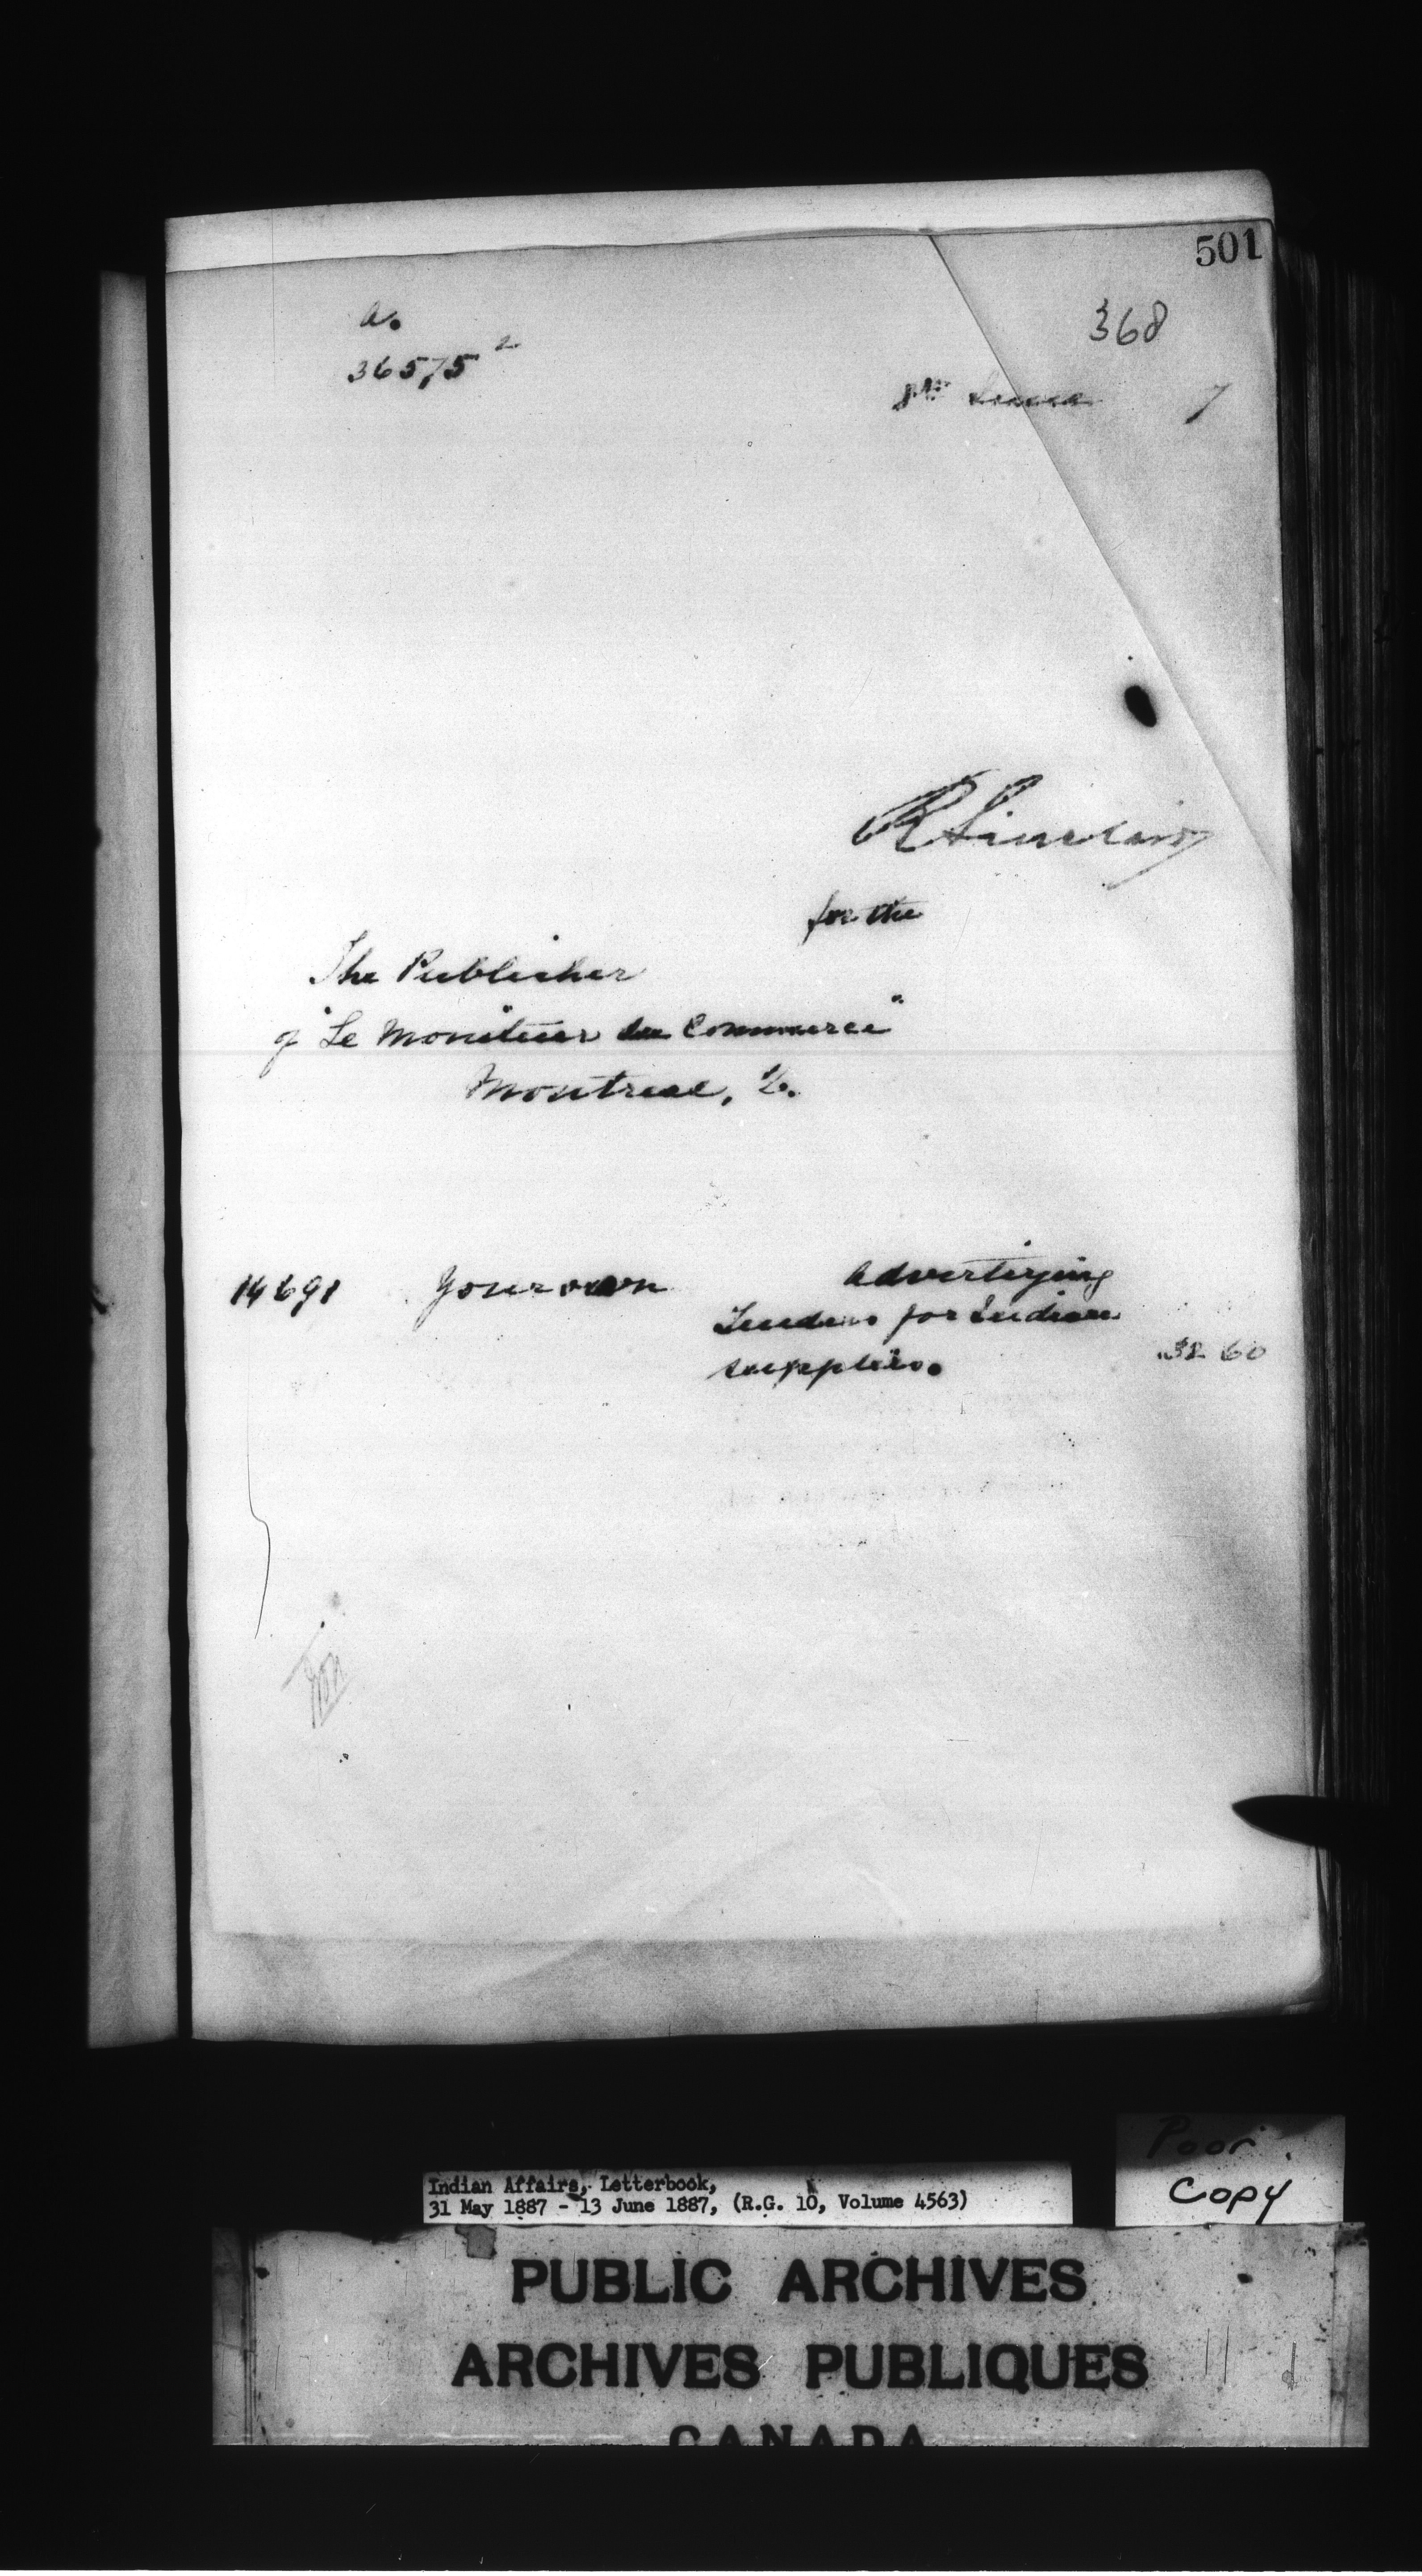 501
368
a.
36575 2
June 7
R Sinclair
for the
The Publisher
of "Le Moniteur du Commerce"
Montreal, 2.
14691 Your own Advertizing
Tenders for Indian
supplies. 32 60
Poor
Copy
Indian Affairs, Letterbook,
31 May 1887 - 13 June 1887, (R.G. 10, Volume 4563)
PUBLIC ARCHIVES
ARCHIVES PUBLIQUES
CANADA